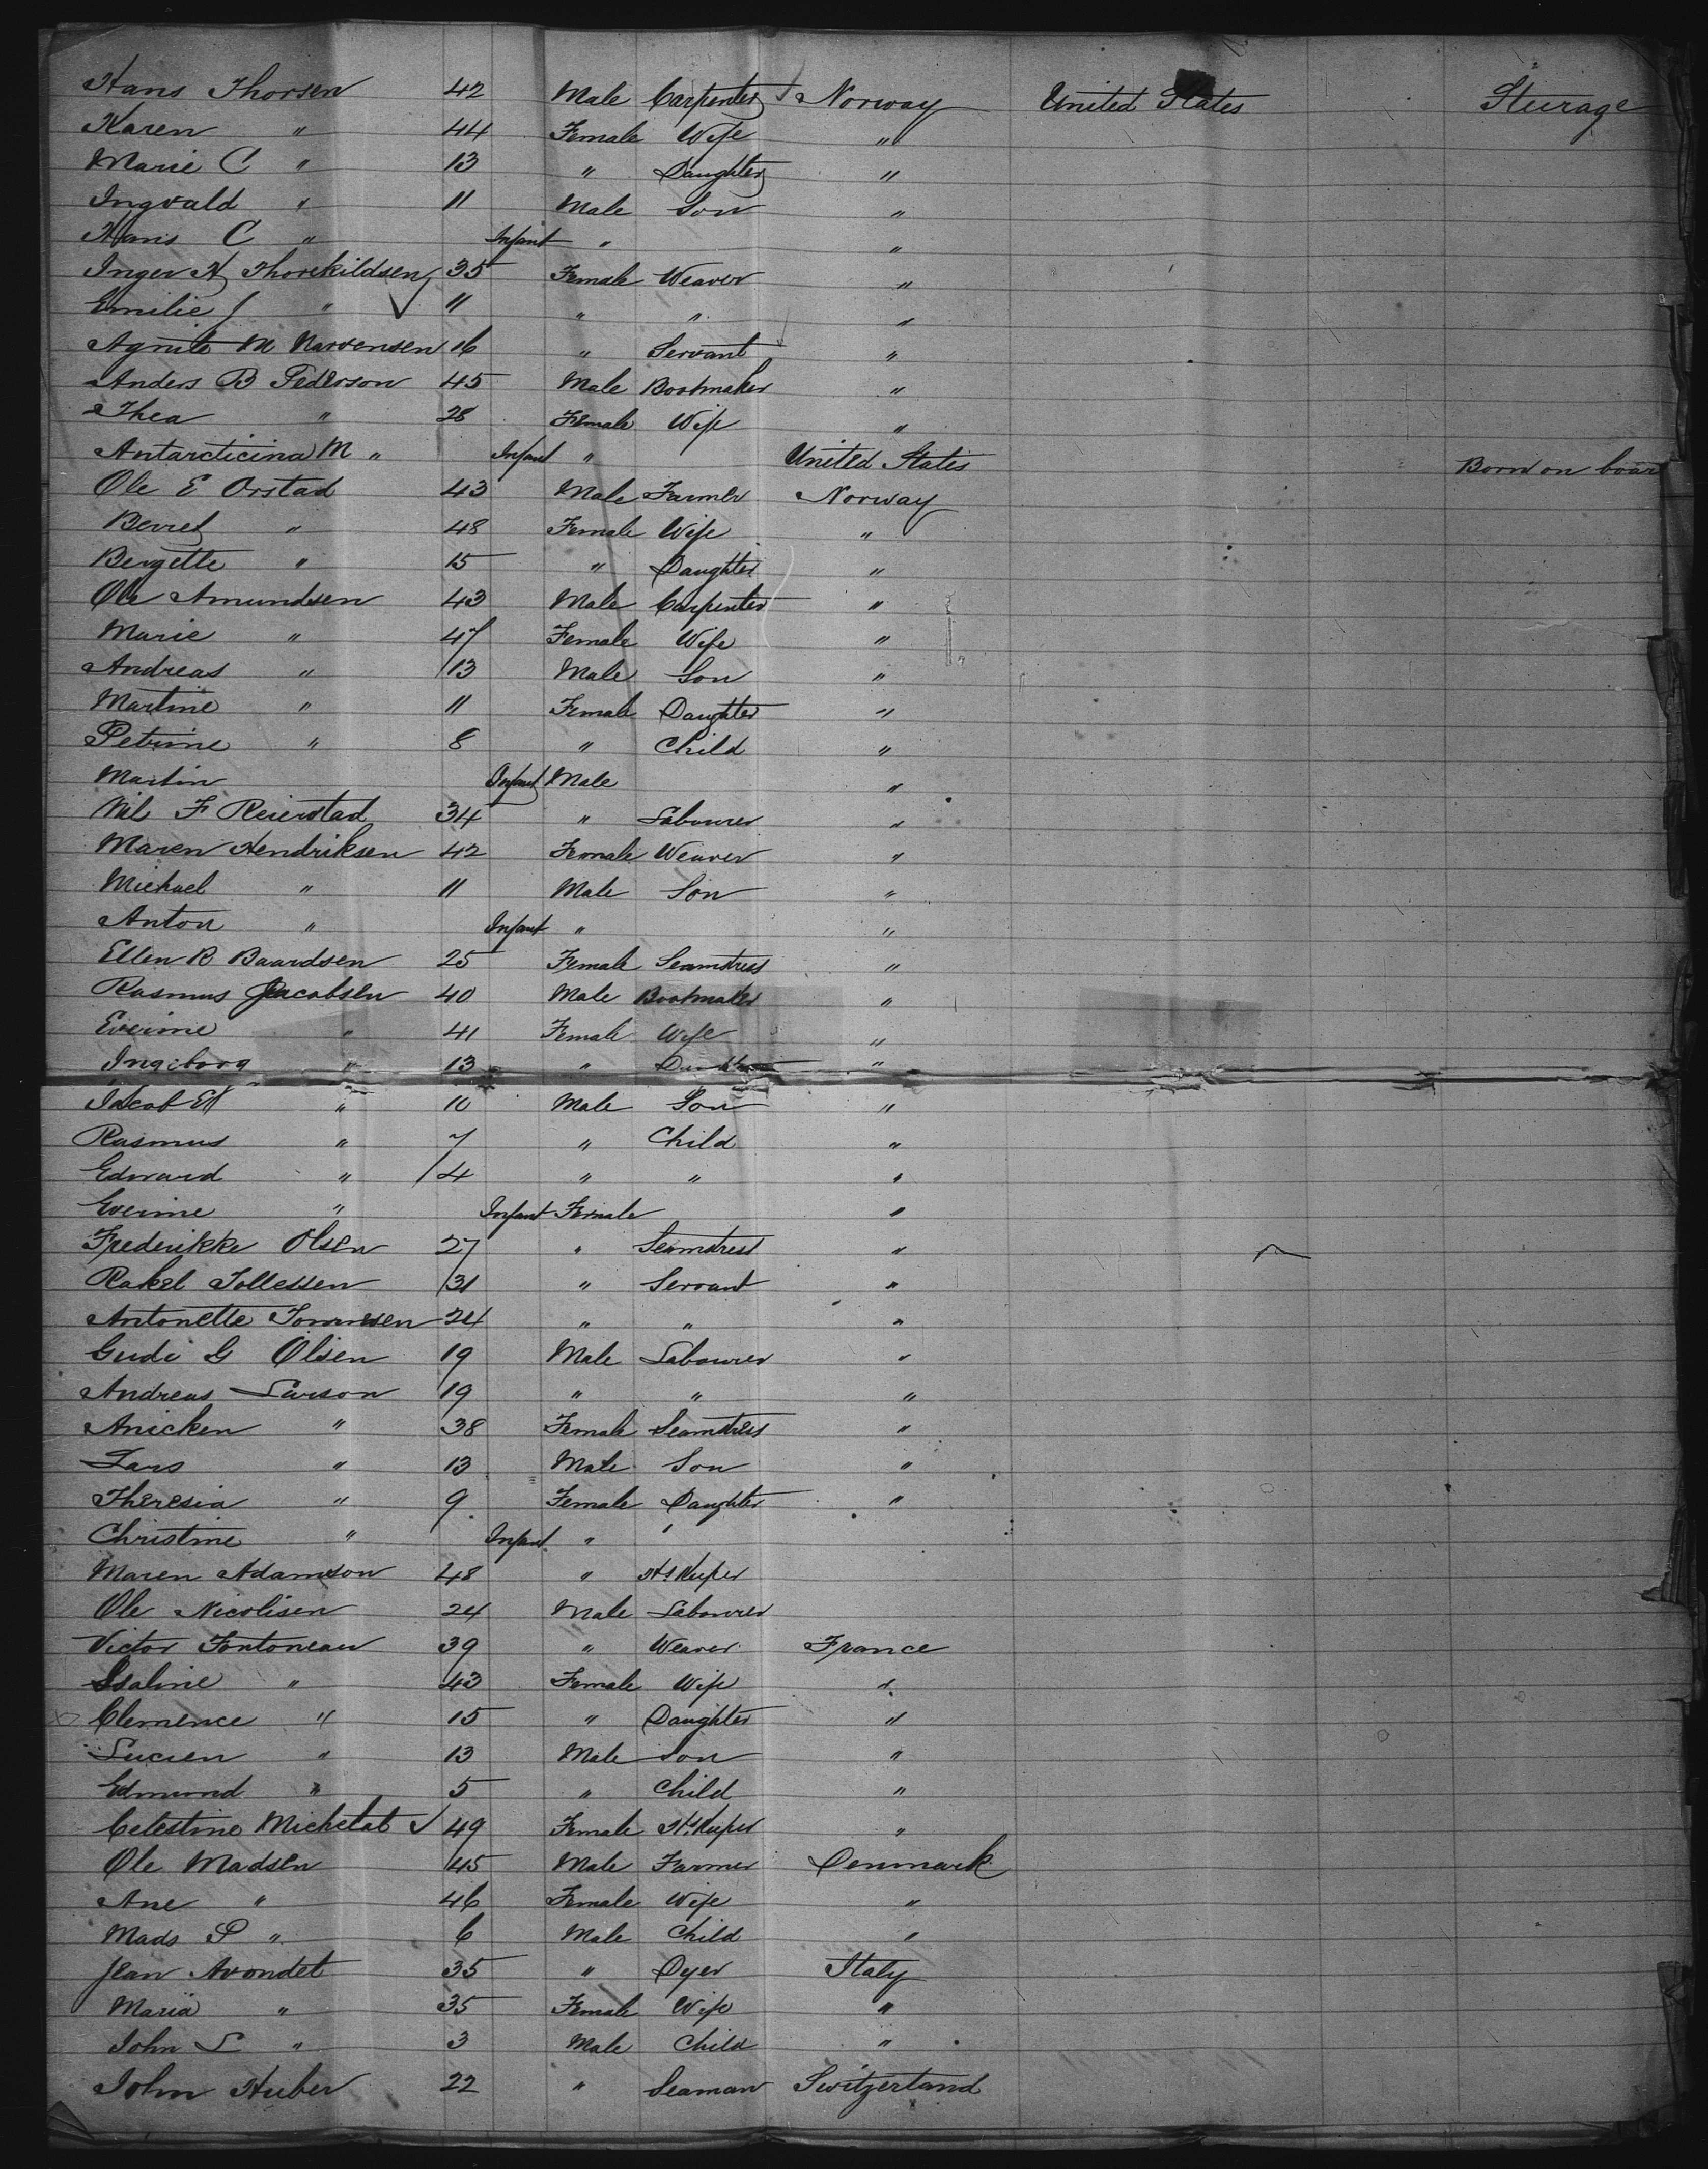 Hans Thorsen 42 Male Carpenter Norway United States Steerage
Karen " 44 Female Wife "
Marie C " 13 " Daughter "
Ingvald " 11 Male Son "
Hans C " Infant " "
Inger H Thorkildsen 35 Female Weaver "
Emilie J " 11 " " "
Agnite M Narvensen 16 " Servant "
Anders B Pederson 45 Male Bootmaker "
Thea " 28 Female Wife "
Antarcticina M " Infant " United States Born on boar
Ole E Orstad 43 Male Farmer Norway
Berret " 48 Female Wife "
Bergette " 15 " Daughter "
Ole Amundsen 43 Male Carpenter "
Marie " 47 Female Wife "
Andreas " 13 Male Son "
Martine " 11 Female Daughter "
Petrine " 8 " Child "
Martin Infant Male "
Nils F Reierstad 34 " Labourer "
Maren Hendriksen 42 Female Weaver "
Michael " 11 Male Son "
Anton " Infant " "
Ellen B Baardsen 25 Female Seamstress "
Rasmus Jacobsen 40 Male Bootmaker "
Everine " 41 Female Wife "
Ingeborg " 13 " Daughter "
Jacob " 10 Male Son "
Rasmus " 7 " Child "
Edward " 4 " " "
Everine " Infant Female "
Frederikke Olsen 27 " Seamstress "
Rakel Tollessen 31 " Servant "
Antonette Tonnesen 24 " " "
Gudi G Olsen 19 Male Labourer "
Andreas Larson 19 " " "
Anicken " 38 Female Seamstress "
Lars " 13 Male Son "
Theresia " 9 Female Daughter "
Christine " Infant " "
Maren Adamson 48 " Hs Keeper
Ole Nicolisen 24 Male Labourer
Victor Fontoneau 39 " Weaver France
Isaline " 43 Female Wife "
Clemence " 15 " Daughter "
Lucien " 13 Male Son "
Edmund " 5 " Child "
Celestine Michelat 49 Female Hs Keeper "
Ole Madsen 45 Male Farmer Denmark
Ane " 46 Female Wife "
Mads P " 6 Male Child "
Jean Avondet 35 " Dyer Italy
Maria " 35 Female Wife "
John L " 3 Male Child "
John Huber 22 " Seaman Switzerland